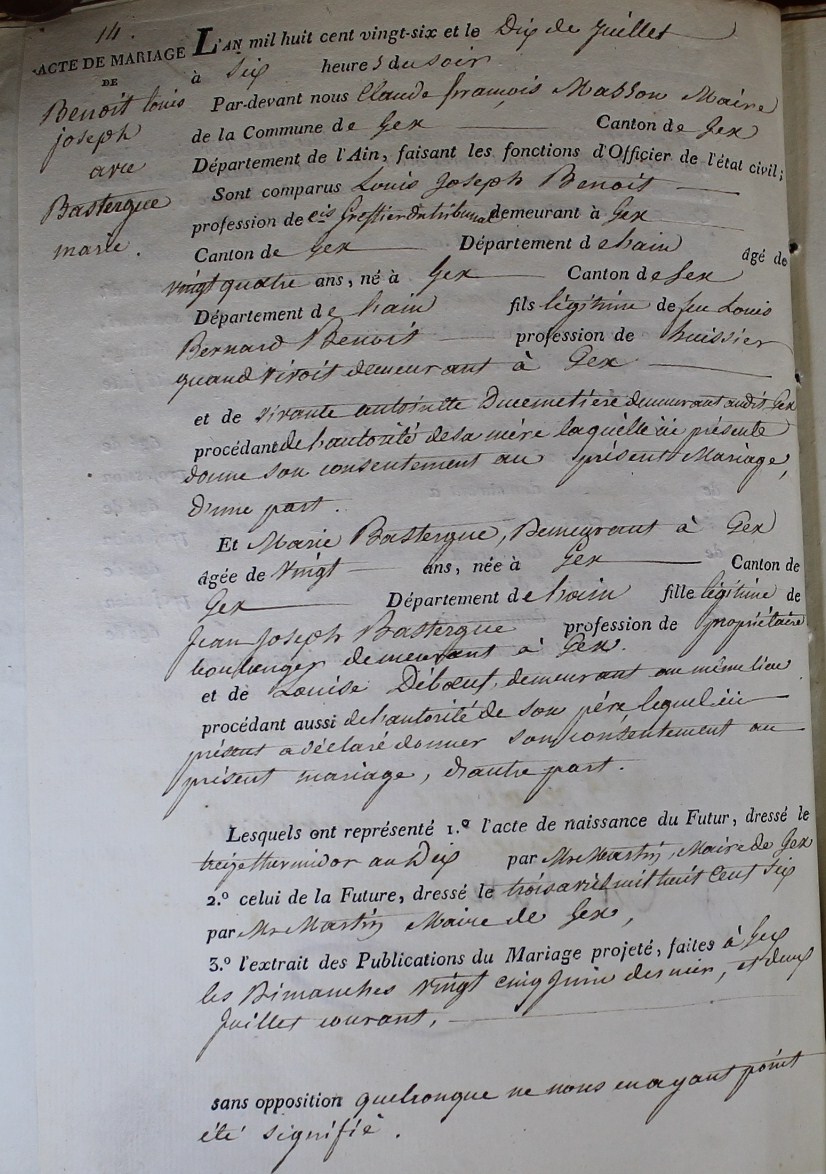 14.
ACTE DE MARIAGE
DE
Benoit louis
joseph
avec
Bastergue
marie.
L'AN mil huit cent vingt-six et le Dix de Juillet
à Six heures du soir
Par-devant nous Claude françois Masson Maire
de la Commune de Gex Canton de Gex
Département de l'Ain, faisant les fonctions d'Officier de l'état civil;
Sont comparus Louis Joseph Benoit
profession de Greffier du tribunal demeurant à Gex
Canton de Gex Département de Lain âgé de
vingt quatre ans, né à Gex Canton de Gex
Département de Lain fils légitime de feu Louis
Bernard Benoit profession de huissier
quand vivoit demeurant à Gex
et de vivante antoinette Ducemetiere demeurant audit Gex
procédant de l'autorité de sa mère laquelle ici présente
donne son consentement au présent Mariage,
d'une part.
Et Marie Bastergue, Demeurant à Gex
âgée de vingt ans, née à Gex Canton de
Gex Département de Lain fille légitime de
Jean Joseph Bastergue profession de propriétaire
boulanger demeurant à Gex.
et de Louise Débœuf, demeurant au même lieu
procédant aussi de l'autorité de son père lequel ici
présent a déclaré donner son consentement au
présent mariage, d'autre part.
Lesquels ont représenté 1.º l'acte de naissance du Futur, dressé le
treize thermidor an Dix par Mr Martin, Maire de Gex
2.º celui de la Future, dressé le trois avril mil huit Cent Six
par Mr Martin Maire de Gex,
3.º l'extrait des Publications du Mariage projeté, faites à Gex
les Dimanches vingt cinq Juin dernier, et deux
Juillet courant,
sans opposition quelconque ne nous en ayant point
été signifié.